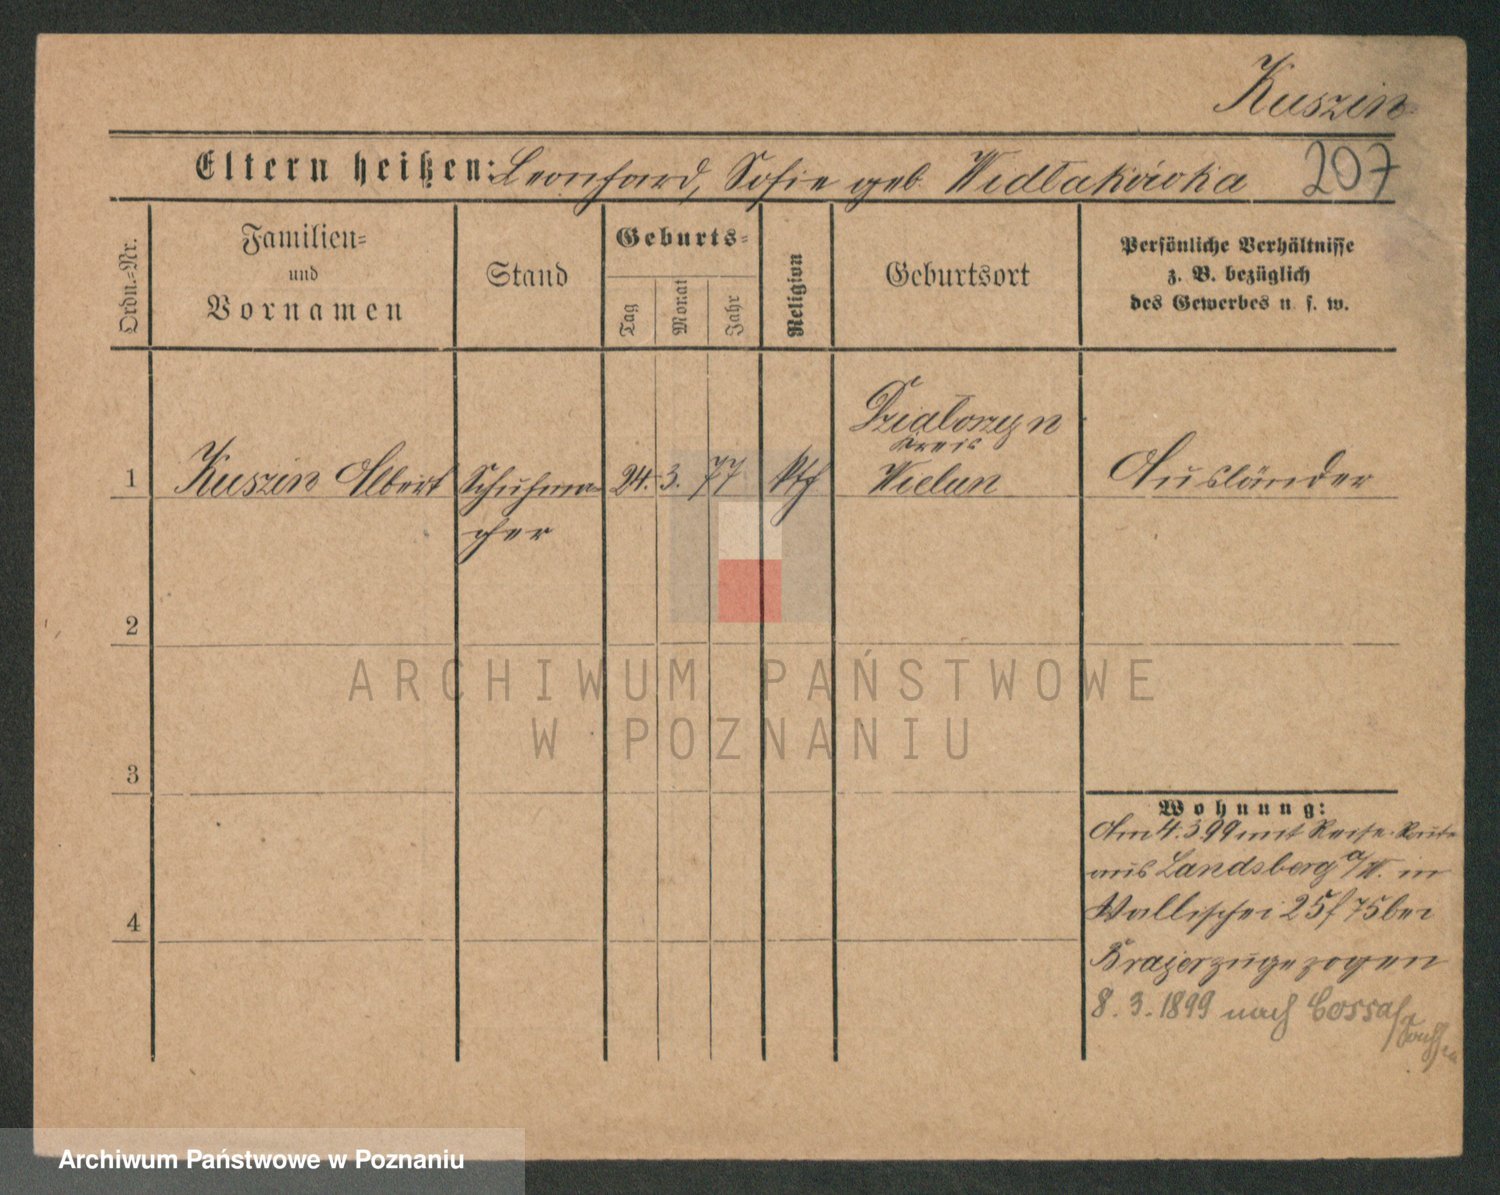 Kuszin
Eltern heißen: Leonhard, Sofie geb. Widlakówka
207
Ordn.=Nr.
Familien=
und
Vornamen
Stand
Geburts=
Tag
Monat
Jahr
Religion
Geburtsort
Persönliche Verhältnisse
z. B. bezüglich
des Gewerbes u. s. w.
1
Kuszin Albert
Schuhma
cher
24.
3.
77
kth
Działoszyn
Kreis
Wielun
Ausländer
2
3
4
Wohnung:
Am 4.3.99 mit Reise-Route
aus Landsberg a/W. in
Wallischei 25 f 75 bei
Krajerzugezogen
8.3.1899 nach Cossa
ARCHIWUM PAŃSTWOWE
W POZNANIU
Archiwum Państwowe w Poznaniu